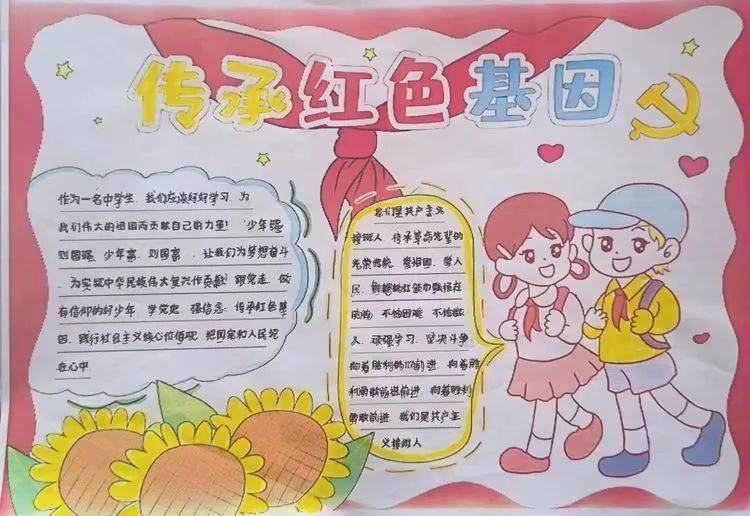 传承红色基因
作为一名中学生,我们应该好好学习,为
我们伟大的祖国而贡献自己的力量! 少年强
则国强,少年富,则国富,让我们为梦想奋斗
,为实现中华民族伟大复兴作贡献! 跟党走,做
有信仰的好少年,学党史,强信念,传承红色基
因,践行社会主义核心价值观,把国家和人民
在心中
我们是共产主义
接班人,传承革命先辈的
光荣传统,爱祖国,爱人
民,鲜艳的红领巾飘扬在
前胸,不怕困难,不怕敌
人,顽强学习,坚决斗争
向着胜利的前进,向着胜
利勇敢前进前进,向着胜利
勇敢前进,我们是共产主
义接班人